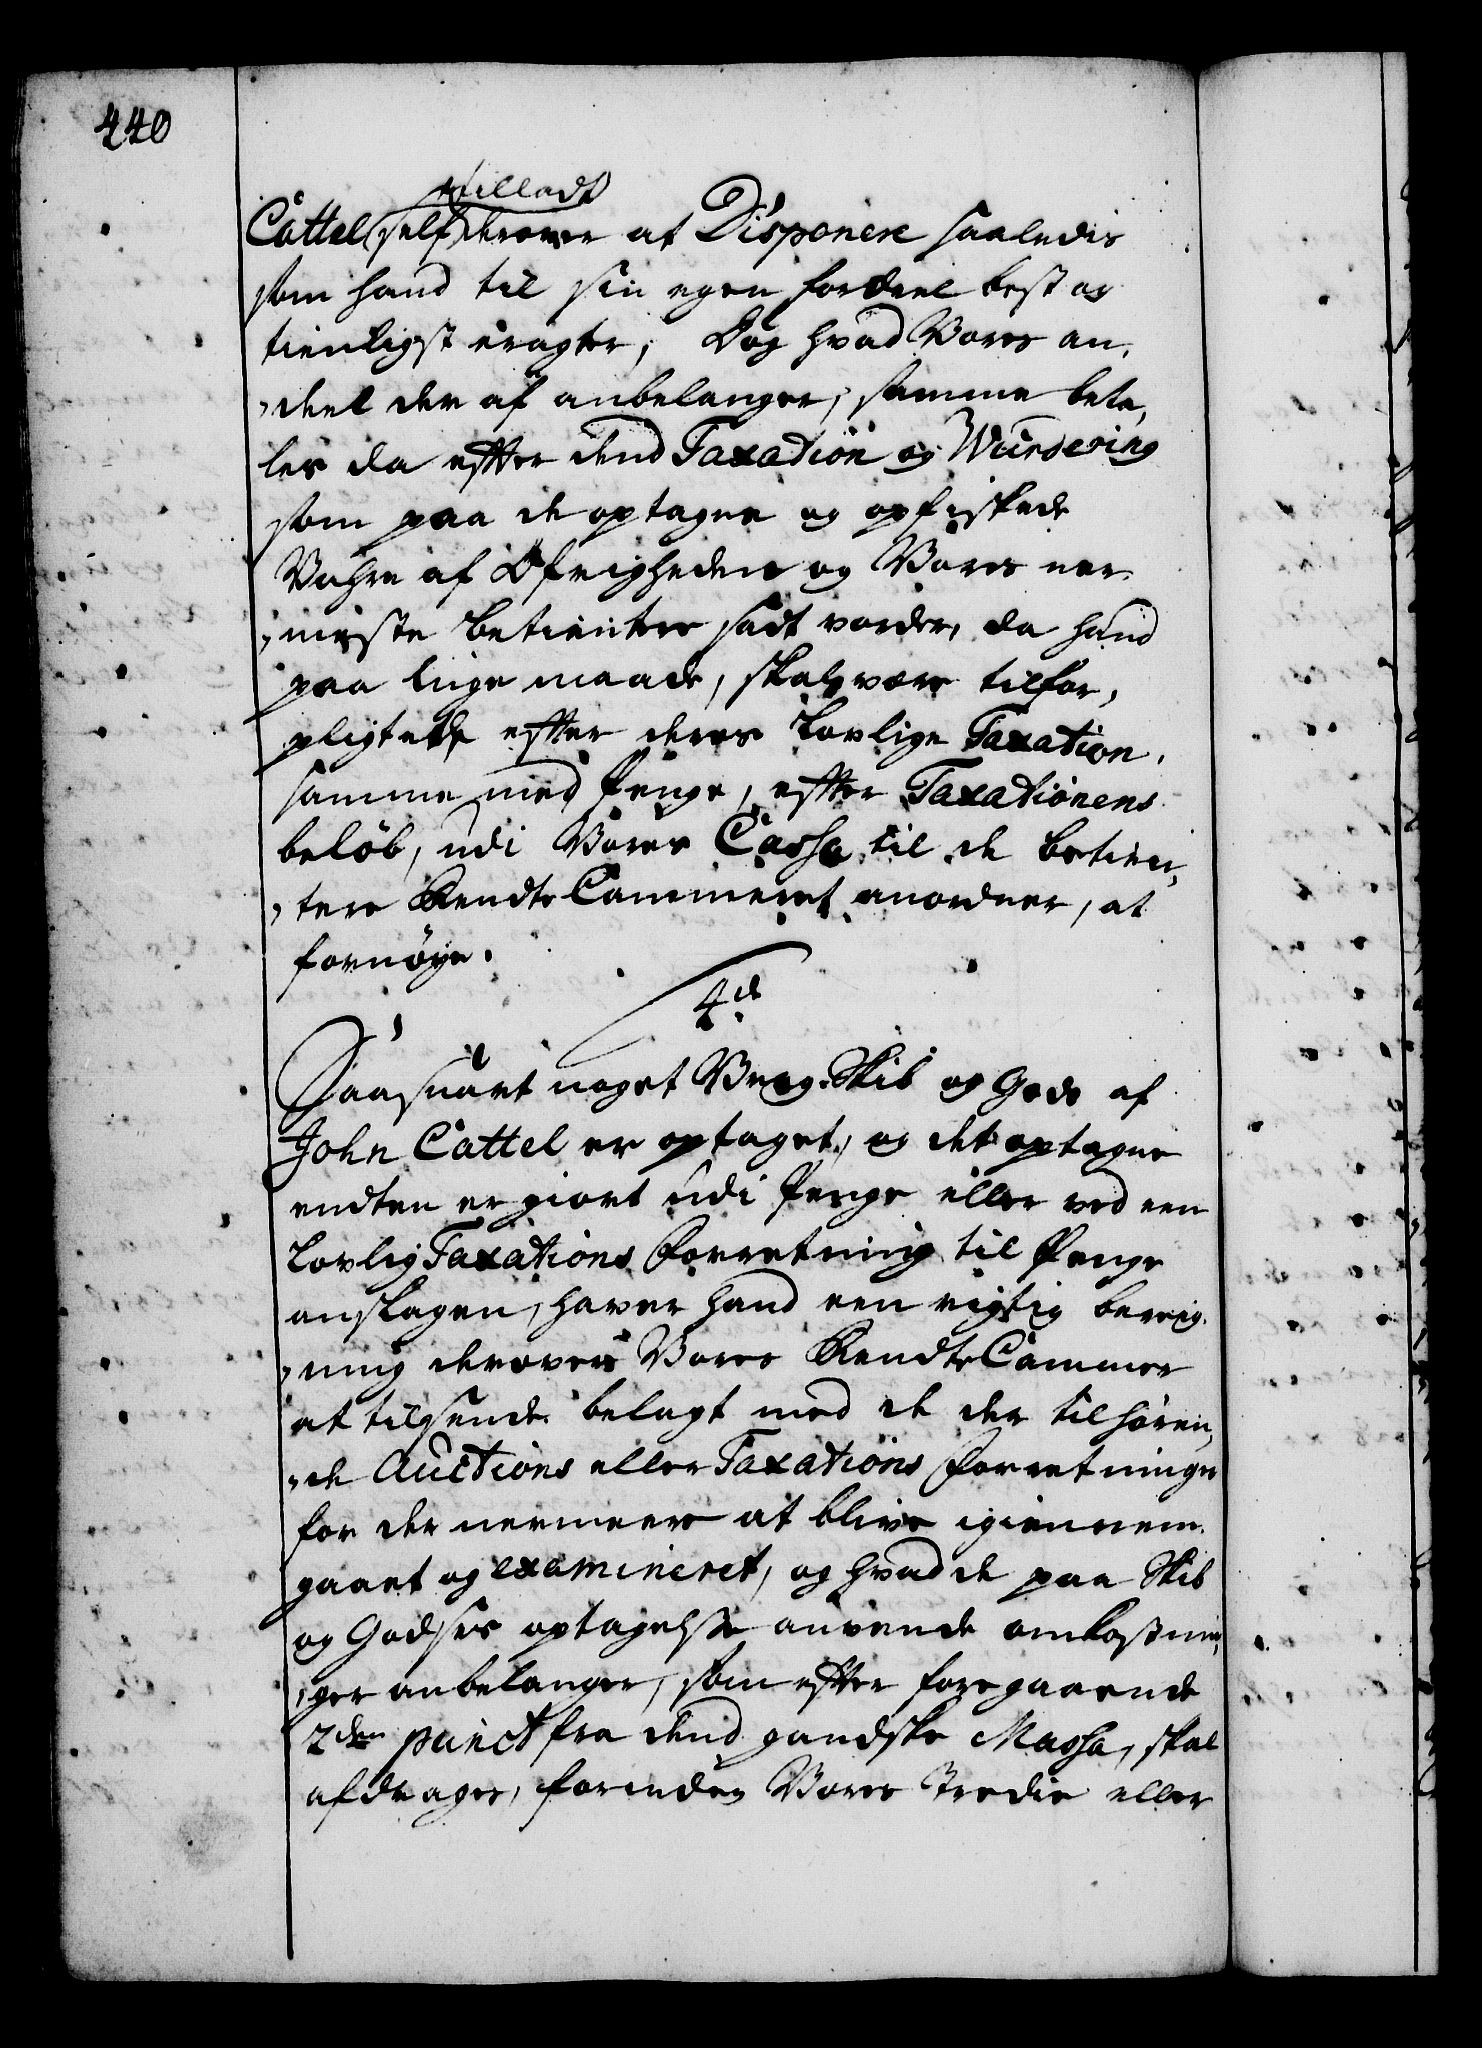 440
tilladt
Cattel self derover at Disponere saaledis
som hand til sin egen fordeel best og
tienligst eragter, Dog hvad Vores an,
,deel der af anbelanger, samme beta,
les da efter dend Taxation og Wurdering
som paa de optagne og opfiskede
Vahre af Øfrigheden og Vores ner,
,meste betienter sadt vorder, da hand
paa lige maade, skal være tilfor,
pligtede efter deres Lovlige Taxation,
samme med Penge, efter Taxationens
beløb, udi Vores Cassa til de betien,
,tere RendteCammeret anordner, at
fornøye.
4de
Saasnart noget Vrag-Skib og Gods af
John Cattel er optaget, og det optagne
endten er giort udi Penge eller ved een
Lovlig Taxations Forretning til Penge
anslagen, haver hand een rigtig bereig,
,ning derover Vores RendteCammer
at tilsende belagt med de der tilhøren,
,de Auctions eller Taxations Forretninger
for der nermeere at blive igiennem
gaaet og examineret, og hvad de paa Skib
og Godses optagelse anvende omkostnin,
,ger anbelanger, som efter foregaaende
2den punct fra dend gandske Massa, skal
afdrages, forinden Vores Tredie eller